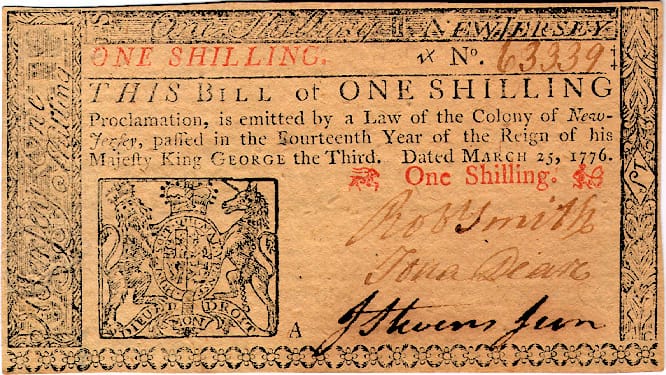 One Shilling
NEW JERSEY
ONE SHILLING.
No. 63339
THIS BILL of ONE SHILLING
Proclamation, is emitted by a Law of the Colony of New-
Jersey, paſſed in the Fourteenth Year of the Reign of his
Majeſty King GEORGE the Third. Dated MARCH 25, 1776.
One Shilling.
Robt Smith
Jona Deare
J Stevens Jun
A
DIEU ET MON DROIT
One Shilling